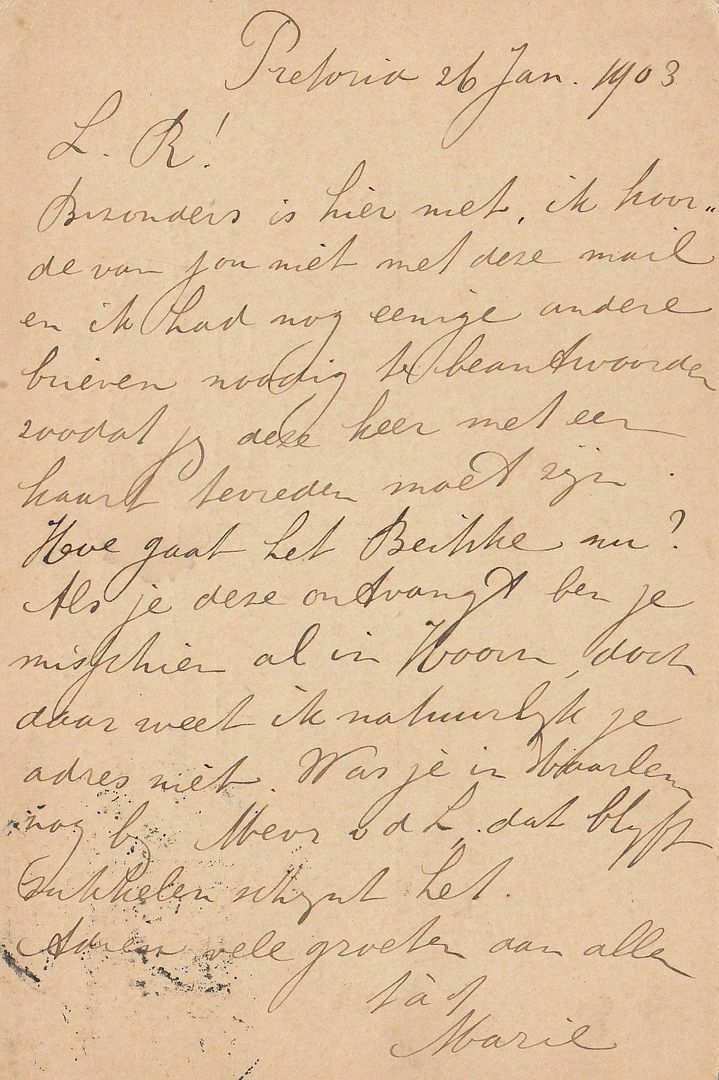 Pretoria 26 Jan. 1903
L. R!
Bizonders is hier niet, ik hoor„
de van jou niet met deze mail
en ik had nog eenige andere
brieven noodig te beantwoorden
zoodat je deze keer met een
kaart tevreden moet zijn.
Hoe gaat het Beitske nu?
Als je deze ontvangt ben je
misschien al in Hoorn, doch
daar weet ik natuurlijk je
adres niet. Was je in Haarlem
nog bij Mevr v d L, dat blyft
sukkelen schynt het.
Adieu vele groeten aan allen
tàt
Marie